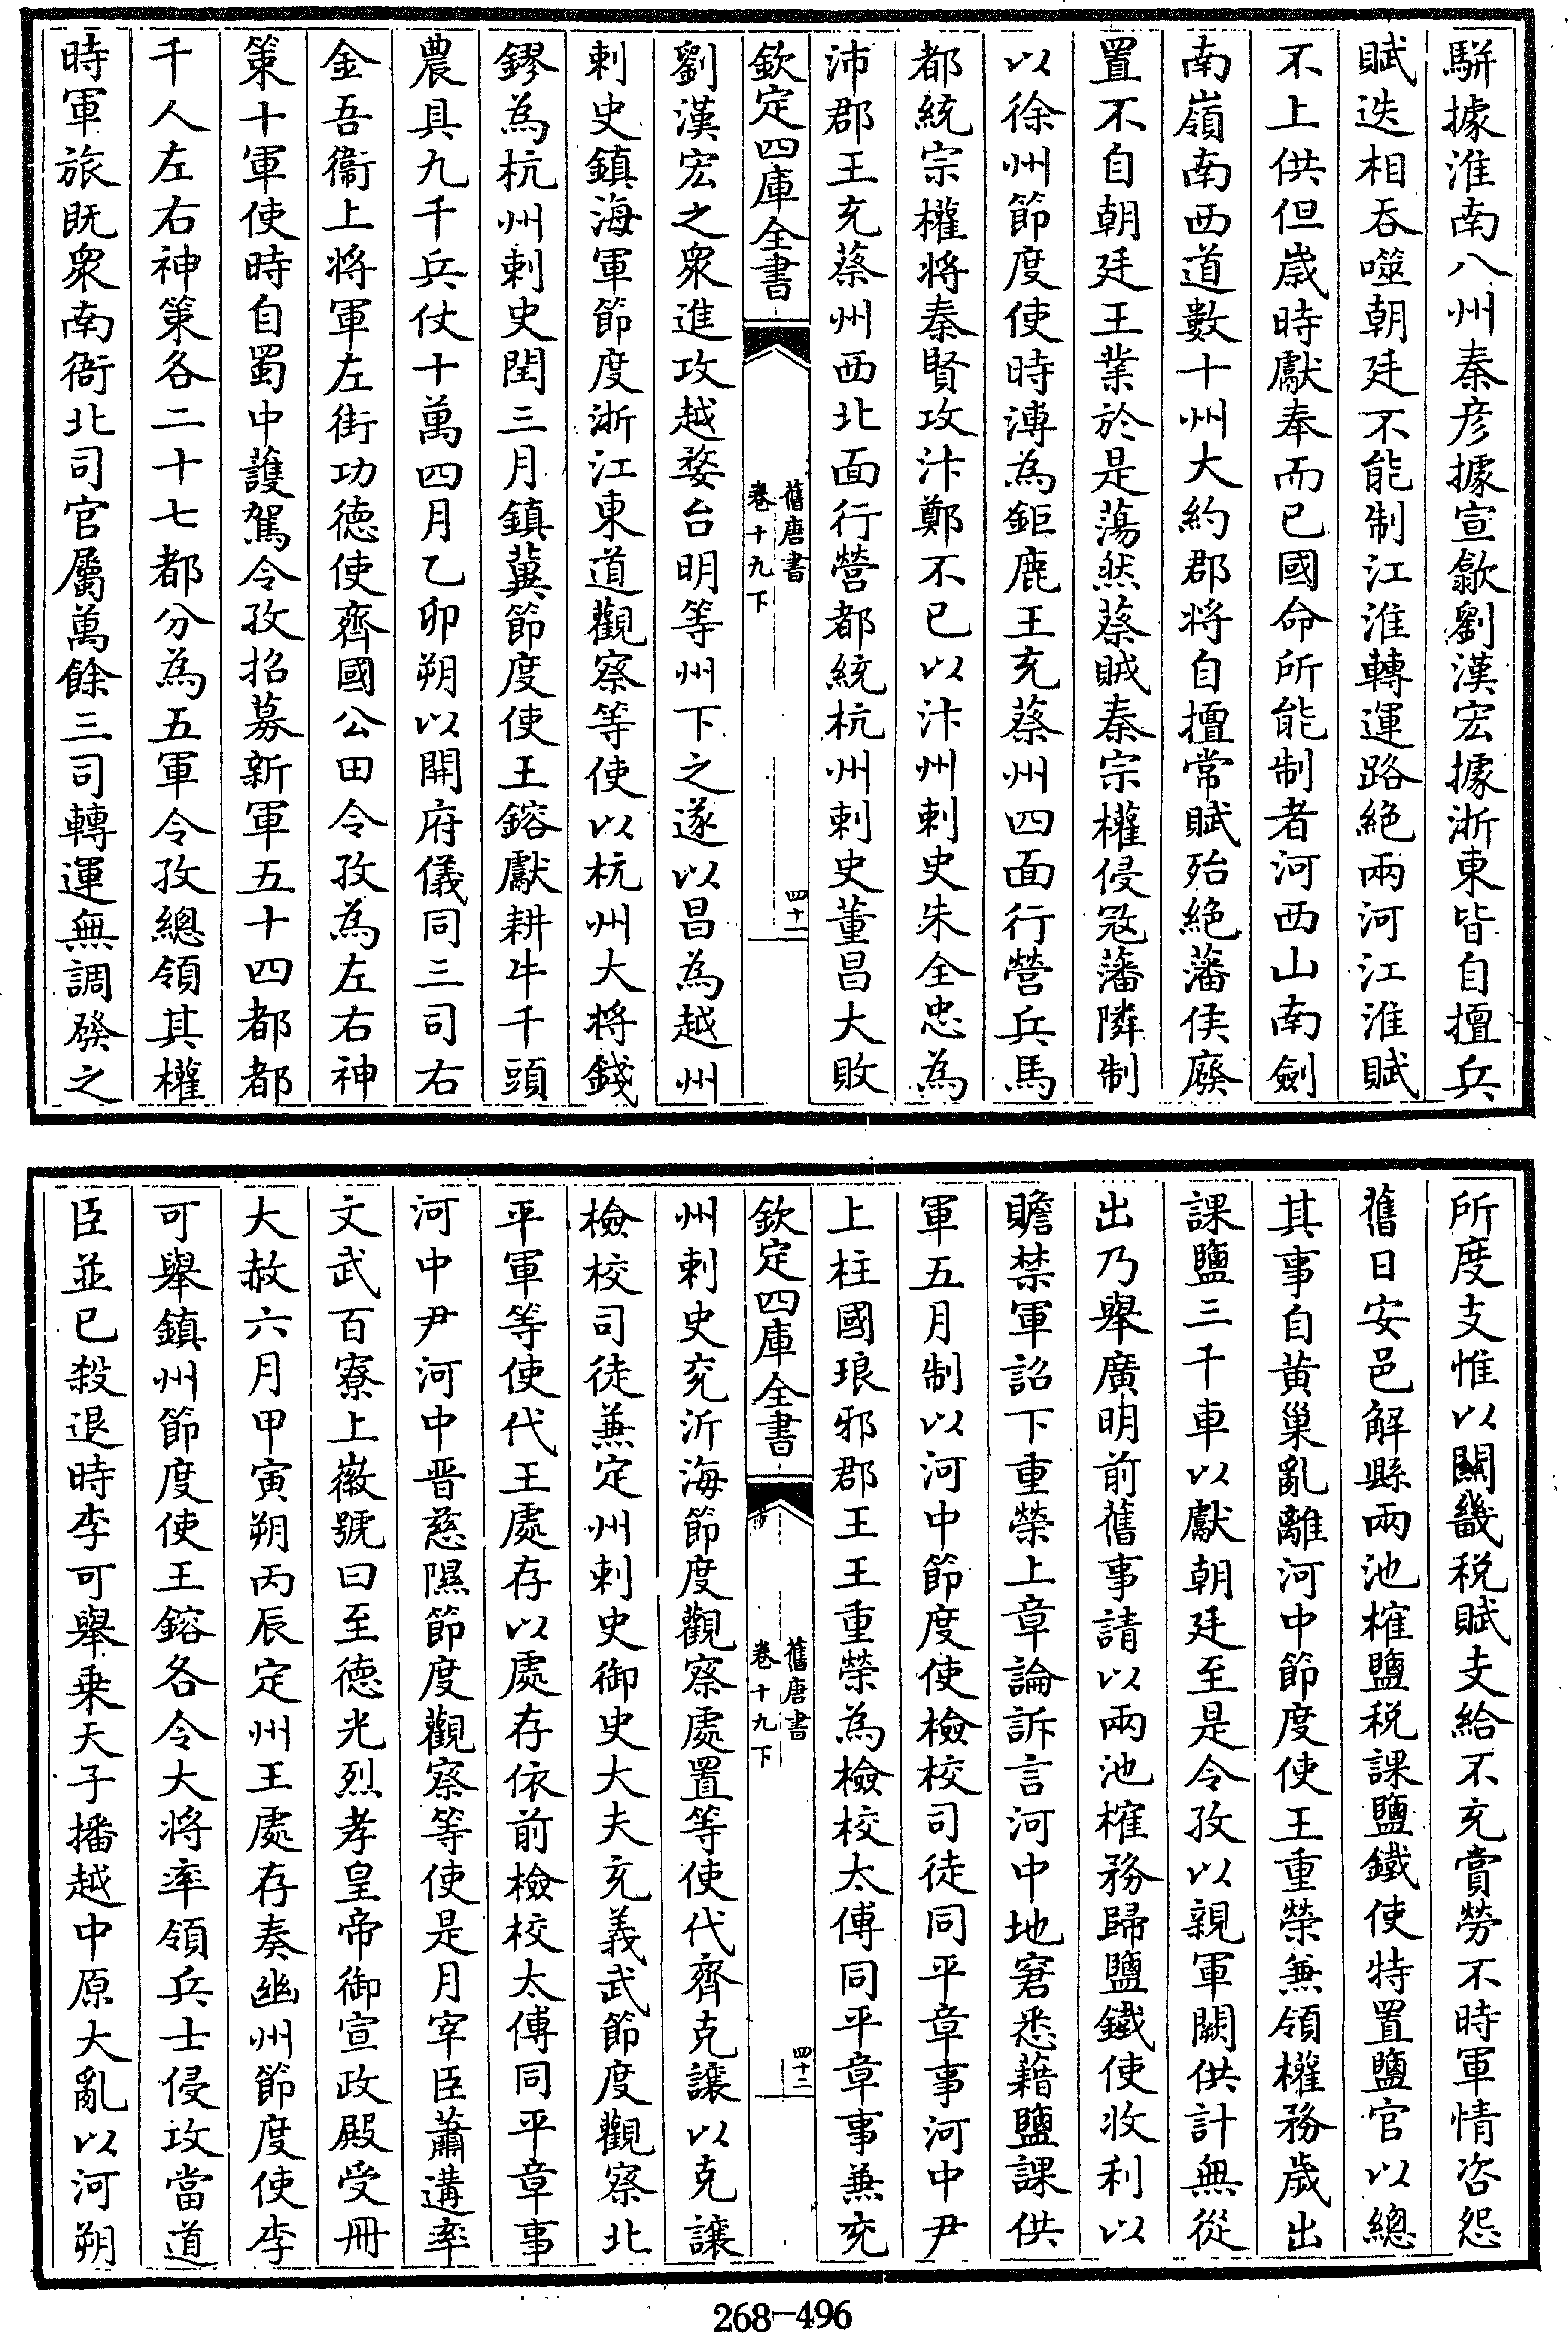 駢據淮南八州秦彦據宣歙劉漢宏據浙東皆自擅兵
賦迭相吞噬朝廷不能制江淮轉運路絶兩河江淮賦
不上供但歳時獻奉而已國命所能制者河西山南劍
南嶺南西道數十州大約郡将自擅常賦殆絶藩侯廢
置不自朝廷王業於是蕩然蔡賊秦宗權侵冦藩隣制
以徐州節度使時溥為鉅鹿王充蔡州四面行營兵馬
都統宗權将秦賢攻汴鄭不已以汴州刺史朱全忠為
沛郡王充蔡州西北面行營都統杭州刺史董昌大敗
欽定四庫全書
舊唐書
卷十九下
四十一
劉漢宏之衆進攻越婺台明等州下之遂以昌為越州
刺史鎮海軍節度浙江東道觀察等使以杭州大將錢
鏐為杭州刺史閏三月鎮冀節度使王鎔獻耕牛千頭
農具九千兵仗十萬四月乙卯朔以開府儀同三司右
金吾衞上将軍左街功徳使齊國公田令孜為左右神
策十軍使時自蜀中護駕令孜招募新軍五十四都都
千人左右神策各二十七都分為五軍令孜總領其權
時軍旅既衆南衙北司官屬萬餘三司轉運無調發之
所度支惟以關畿税賦支給不充賞勞不時軍情咨怨
舊日安邑解縣兩池榷鹽税課鹽鐵使特置鹽官以總
其事自黄巢亂離河中節度使王重榮兼領權務歳出
課鹽三千車以獻朝廷至是令孜以親軍闕供計無從
出乃舉廣明前舊事請以兩池榷務歸鹽鐵使收利以
贍禁軍詔下重榮上章論訴言河中地窘悉藉鹽課供
軍五月制以河中節度使檢校司徒同平章事河中尹
上柱國琅邪郡王王重榮為檢校太傅同平章事兼兖
欽定四庫全書
舊唐書
卷十九下
四十二
州刺史兖沂海節度觀察處置等使代齊克讓以克讓
檢校司徒兼定州刺史御史大夫充義武節度觀察北
平軍等使代王處存以處存依前檢校太傅同平章事
河中尹河中晋慈隰節度觀察等使是月宰臣蕭遘率
文武百寮上徽號曰至徳光烈孝皇帝御宣政殿受冊
大赦六月甲寅朔丙辰定州王處存奏幽州節度使李
可舉鎮州節度使王鎔各令大将率領兵士侵攻當道
臣並已殺退時李可舉乗天子播越中原大亂以河朔
268-496